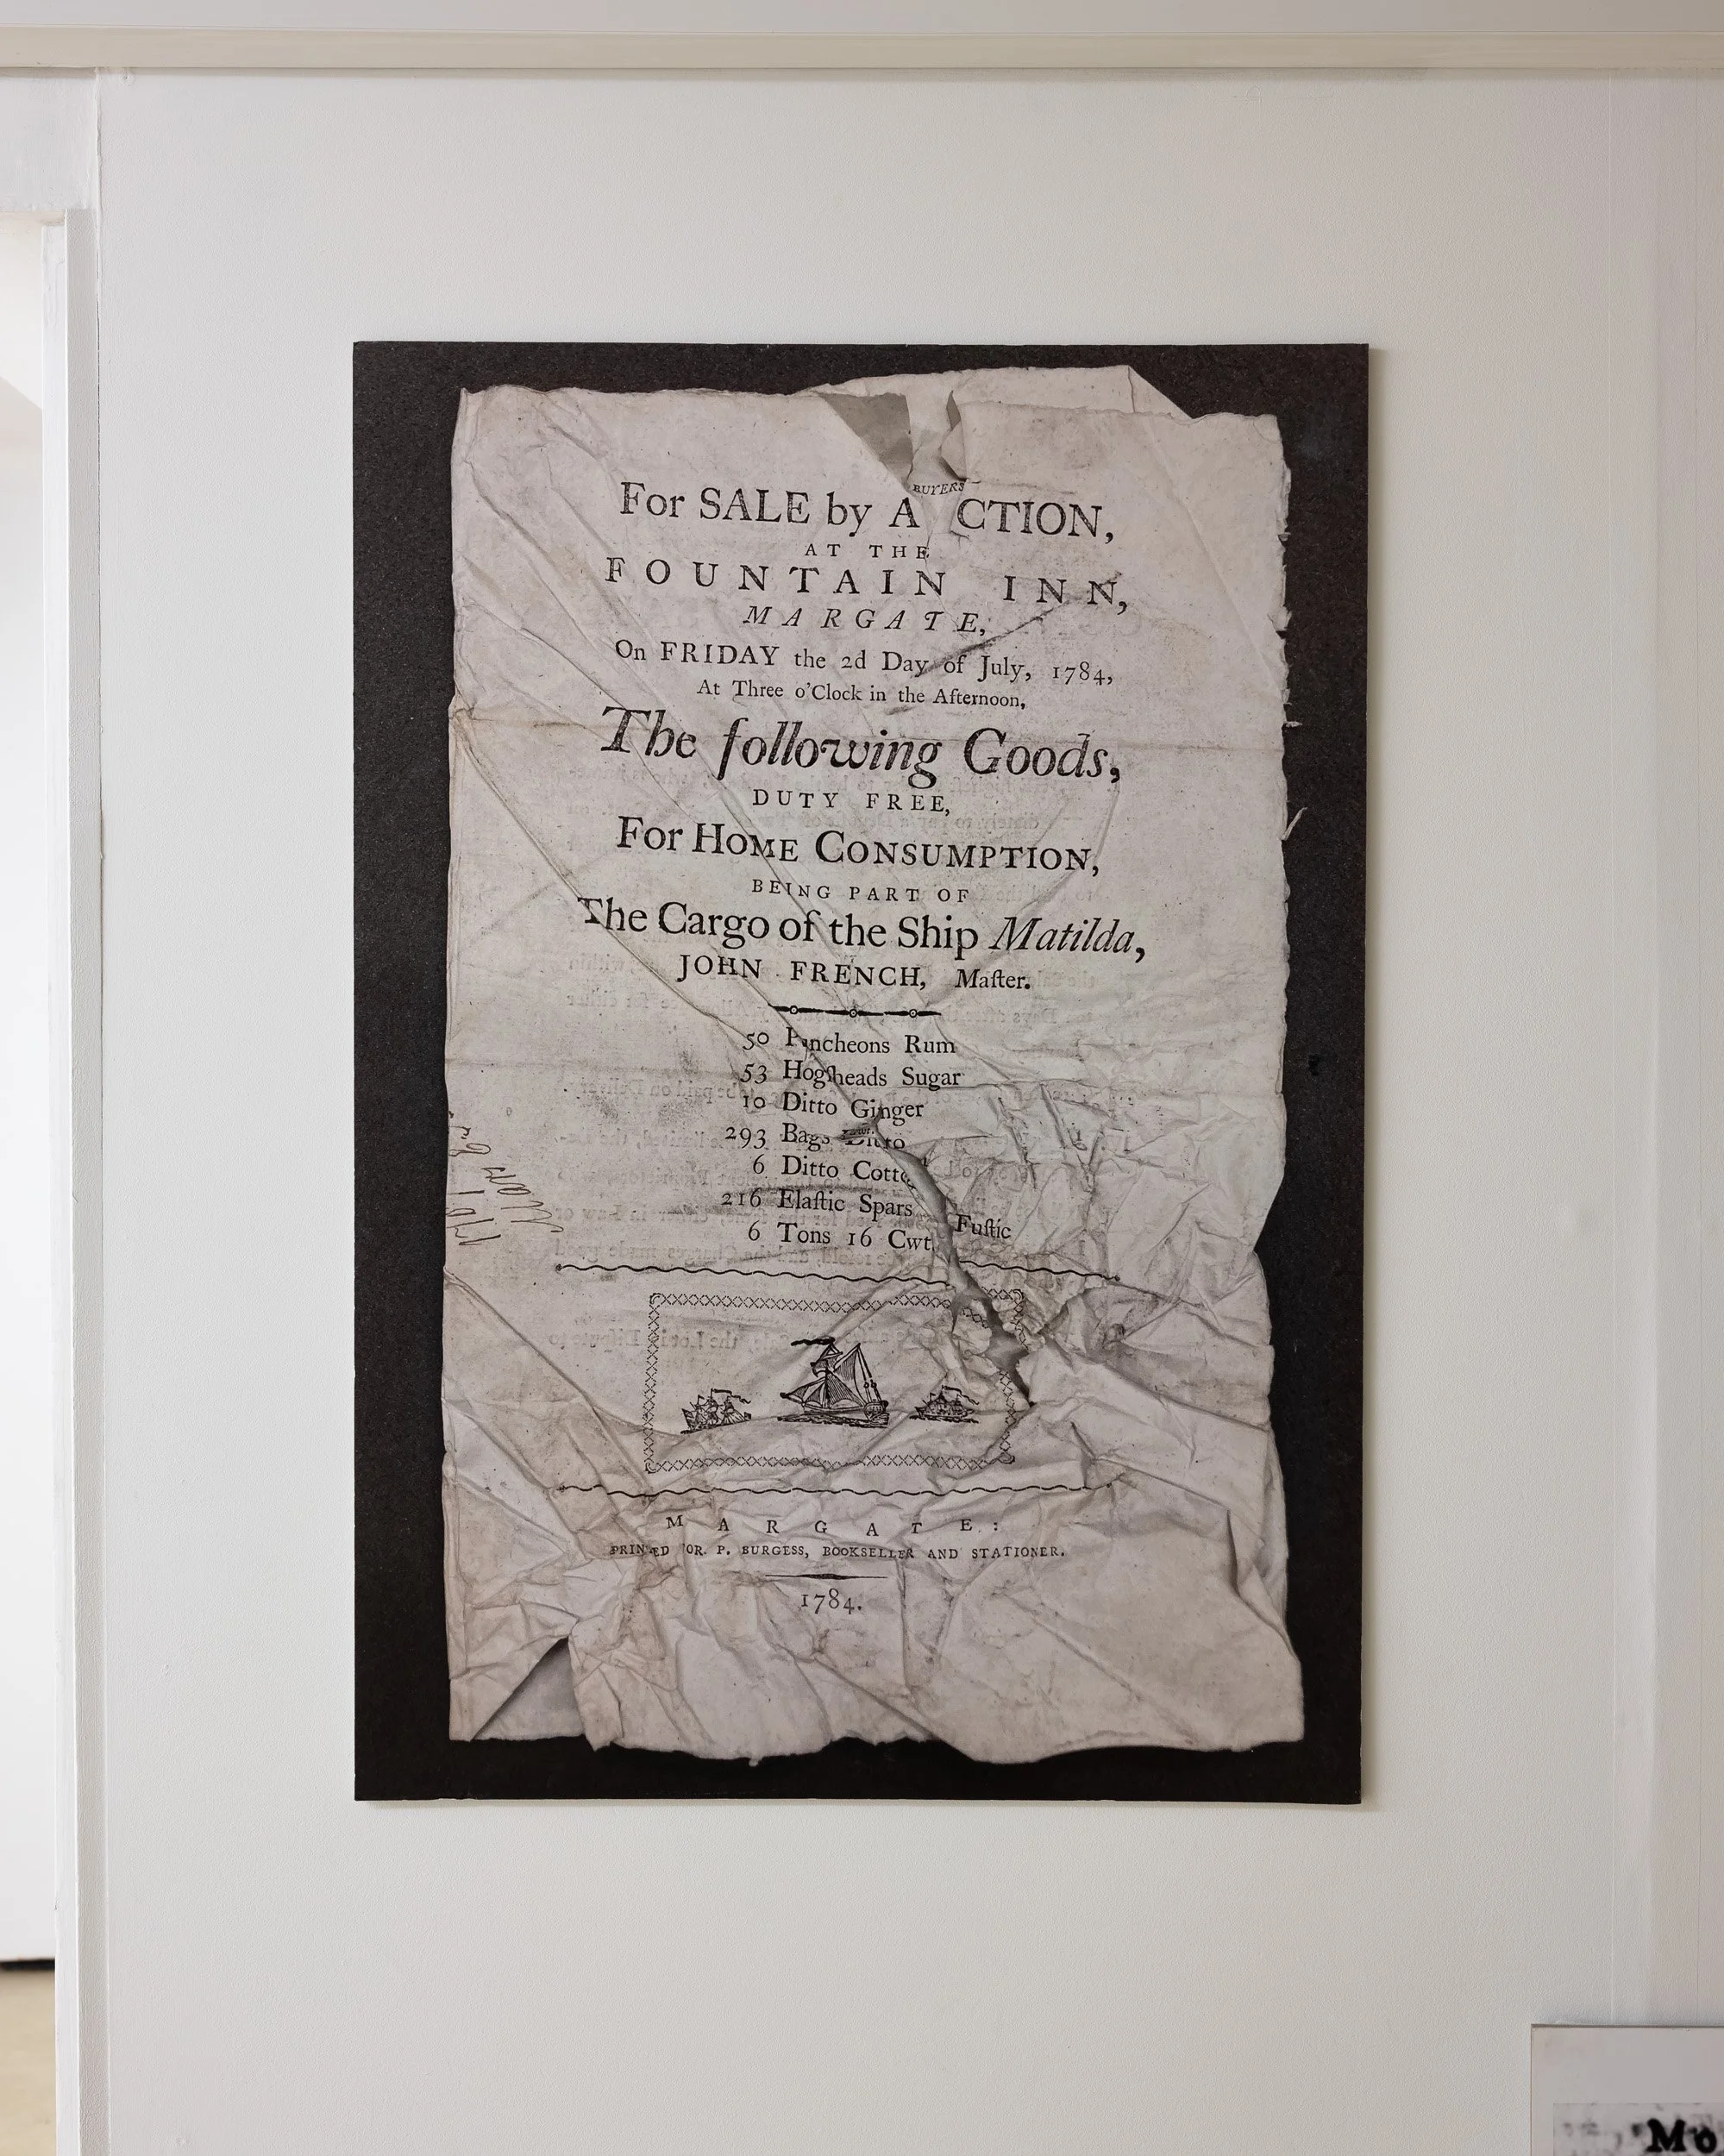 BUYERS
For SALE by A CTION,
AT THE
FOUNTAIN INN,
MARGATE,
On FRIDAY the 2d Day of July, 1784,
At Three o'Clock in the Afternoon,
The following Goods,
DUTY FREE,
For HOME CONSUMPTION,
BEING PART OF
The Cargo of the Ship Matilda,
JOHN FRENCH, Maſter.
50 Puncheons Rum
53 Hogſheads Sugar
10 Ditto Ginger
293 Bags Ditto
6 Ditto Cotto
216 Elaſtic Spars
6 Tons 16 Cwt. Fuſtic
MARGATE:
PRINTED FOR P. BURGESS, BOOKSELLER AND STATIONER.
1784.
Mo